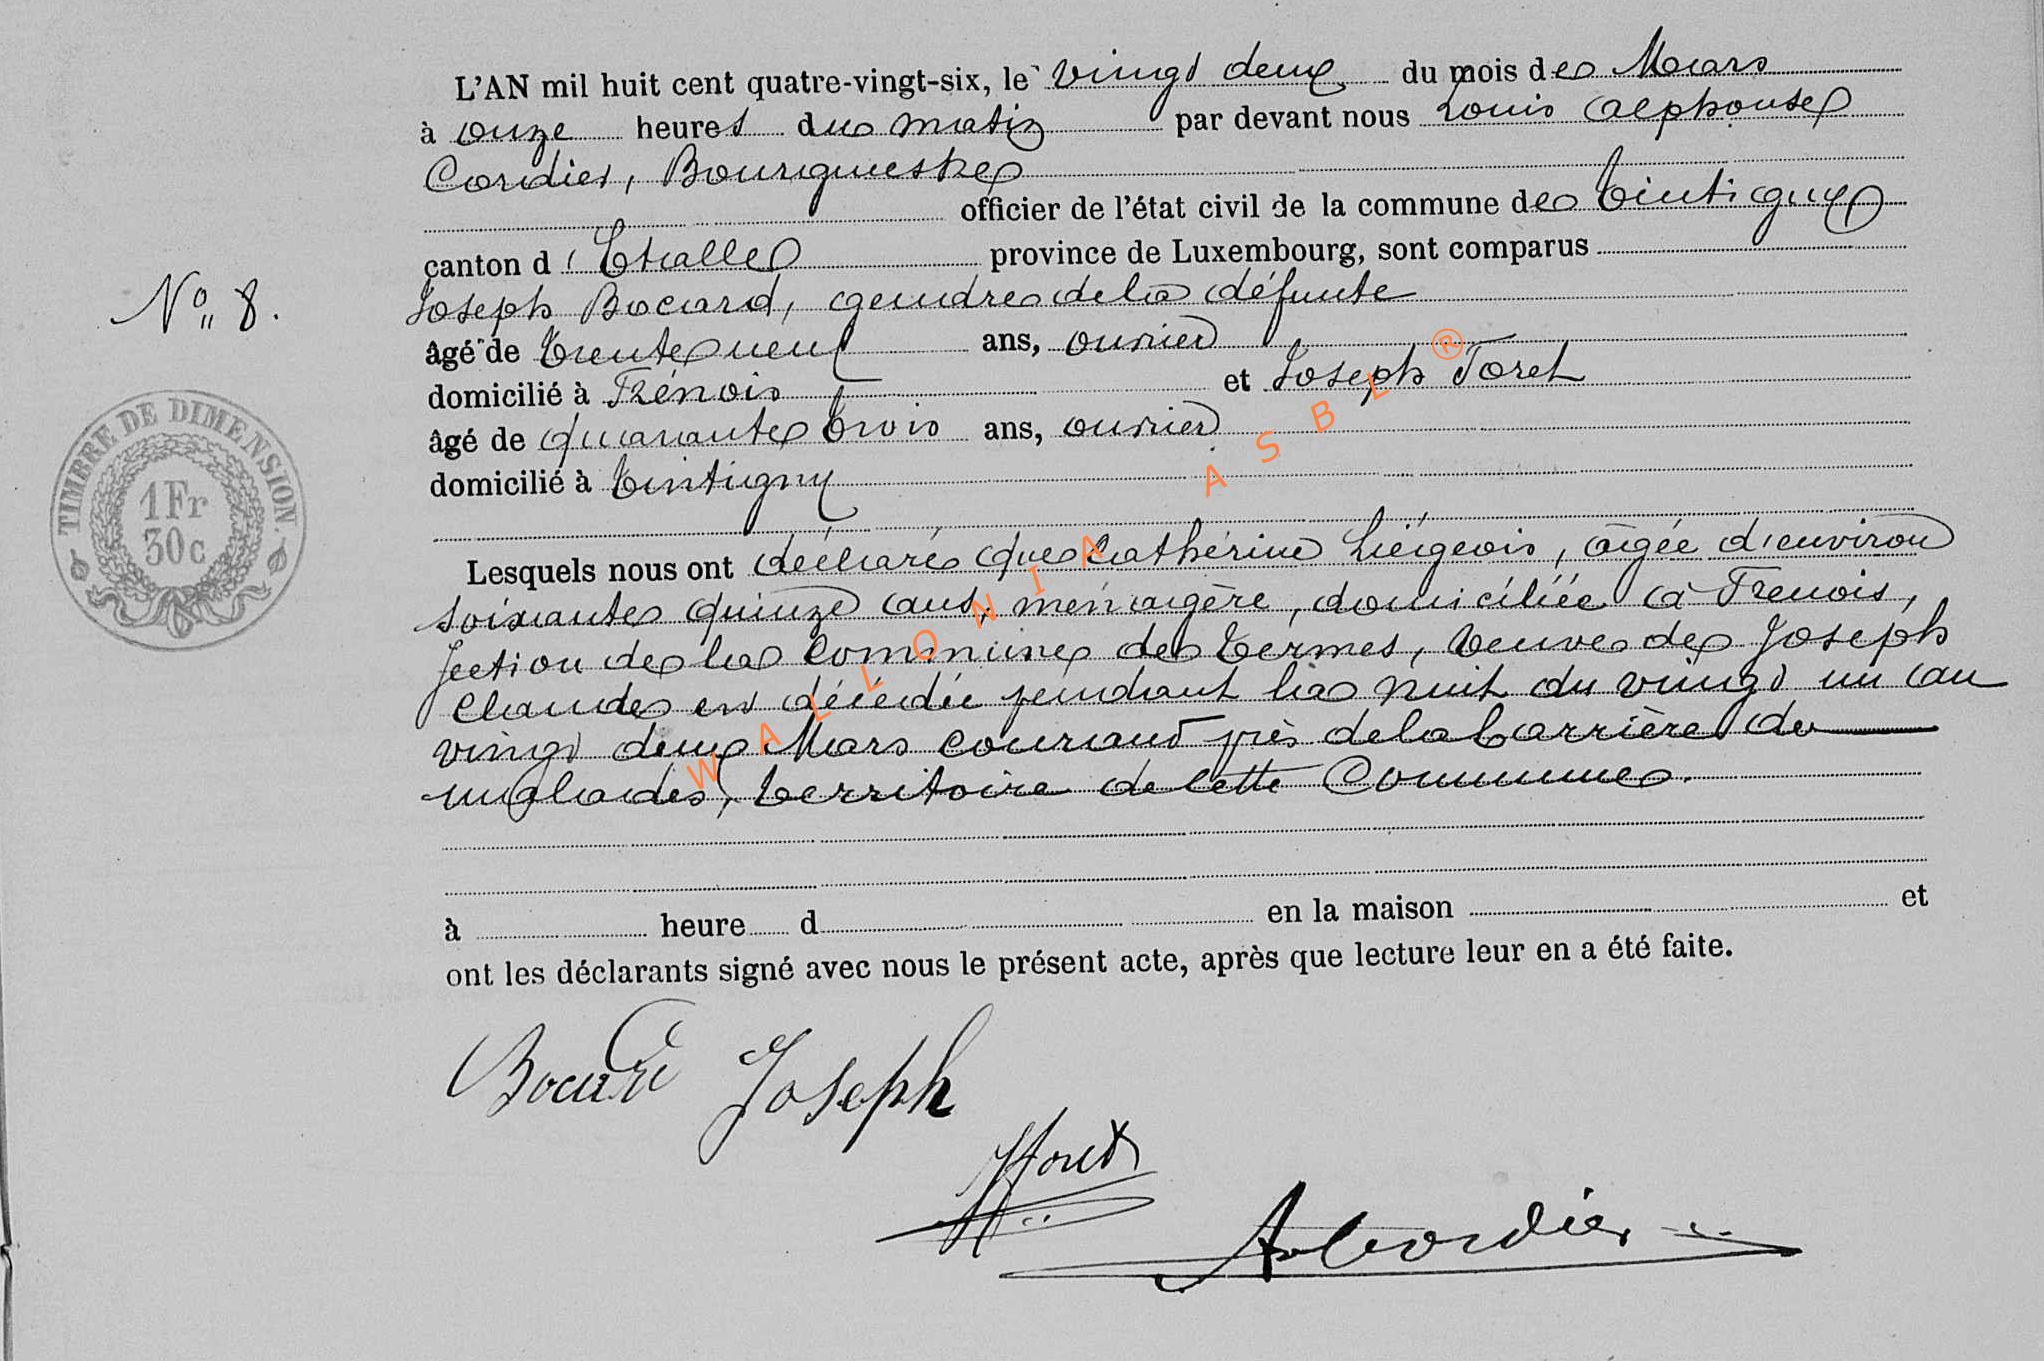 L'AN mil huit cent quatre-vingt-six, le vingt deux du mois de Mars
à onze heures du matin par devant nous Louis Alphonse
Cordier, Bourgmestre
officier de l'état civil de la commune de Tintigny
canton d'Etalle province de Luxembourg, sont comparus
N° 8.
Joseph Bocard, gendre de la défunte
âgé de trente neuf ans, ouvrier
domicilié à Frénois et Joseph Foret
âgé de quarante trois ans, ouvrier
domicilié à Tintigny
TIMBRE DE DIMENSION.
1 Fr
30 c
Lesquels nous ont déclaré que Catherine Liégeois, âgée d'environ
soixante quinze ans, ménagère, domiciliée à Frenois,
section de la Commune de Termes, veuve de Joseph
Claude est décédée pendant la nuit du vingt un au
vingt deux Mars courant près de la barrière de
territoire de cette Commune.
à heure d en la maison et
ont les déclarants signé avec nous le présent acte, après que lecture leur en a été faite.
Bocard Joseph
JForet
A Cordier
WALLONIA ASBL ®